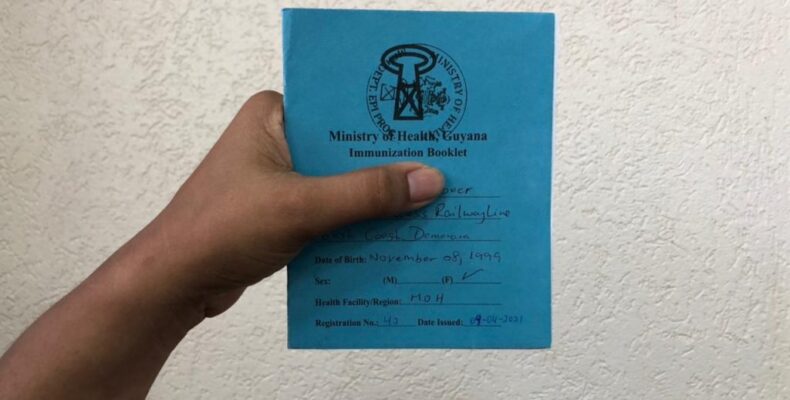 DEPT. EPI PROG MINISTRY OF HEALTH
Ministry of Health, Guyana
Immunization Booklet
over
Railway Line
Coast Demerara
Date of Birth: November 08, 1999
Sex: (M) (F) ✓
Health Facility/Region: MOH
Registration No.: 43 Date Issued: 09-04-2021